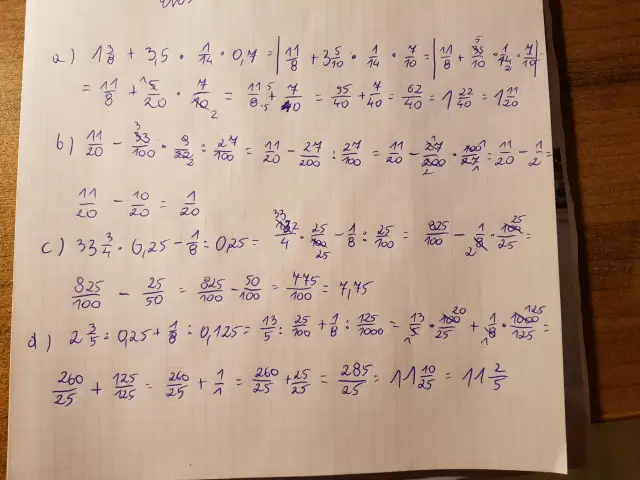 a) 1 3/8 + 3,5 · 1/14 · 0,7 = | 11/8 + 3 5/10 · 1/14 · 7/10 = | 11/8 + 35/10 · 1/14 · 7/10 | =
= 11/8 + 5/20 · 7/10 = 11/8 + 7/40 = 55/40 + 7/40 = 62/40 = 1 22/40 = 1 11/20
b) 11/20 - 33/100 · 9/22 : 27/100 = 11/20 - 27/200 : 27/100 = 11/20 - 27/200 · 100/27 = 11/20 - 1/2 =
11/20 - 10/20 = 1/20
c) 33 3/4 · 0,25 - 1/8 : 0,25 = 132/4 · 25/100 - 1/8 : 25/100 = 825/100 - 1/8 · 100/25 =
825/100 - 25/50 = 825/100 - 50/100 = 775/100 = 7,75
d) 2 3/5 : 0,25 + 1/8 : 0,125 = 13/5 : 25/100 + 1/8 : 125/1000 = 13/5 · 100/25 + 1/8 · 1000/125 =
260/25 + 125/125 = 260/25 + 1/1 = 260/25 + 25/25 = 285/25 = 11 10/25 = 11 2/5